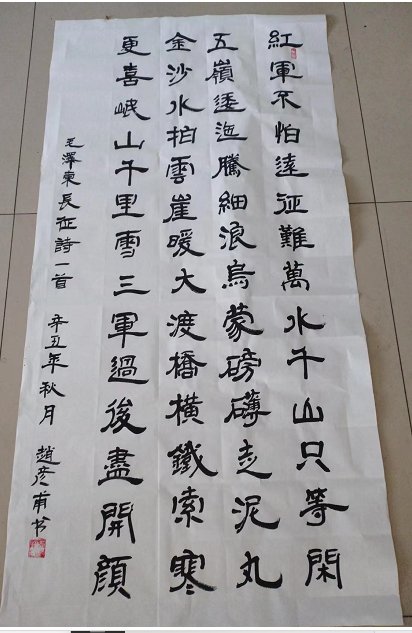 紅軍不怕遠征難萬水千山只等閑
五嶺逶迤騰細浪烏蒙磅礴走泥丸
金沙水拍雲崖暖大渡橋橫鐵索寒
更喜岷山千里雪三軍過後盡開顔
毛澤東長征詩一首 辛丑年秋月 趙彦甫书